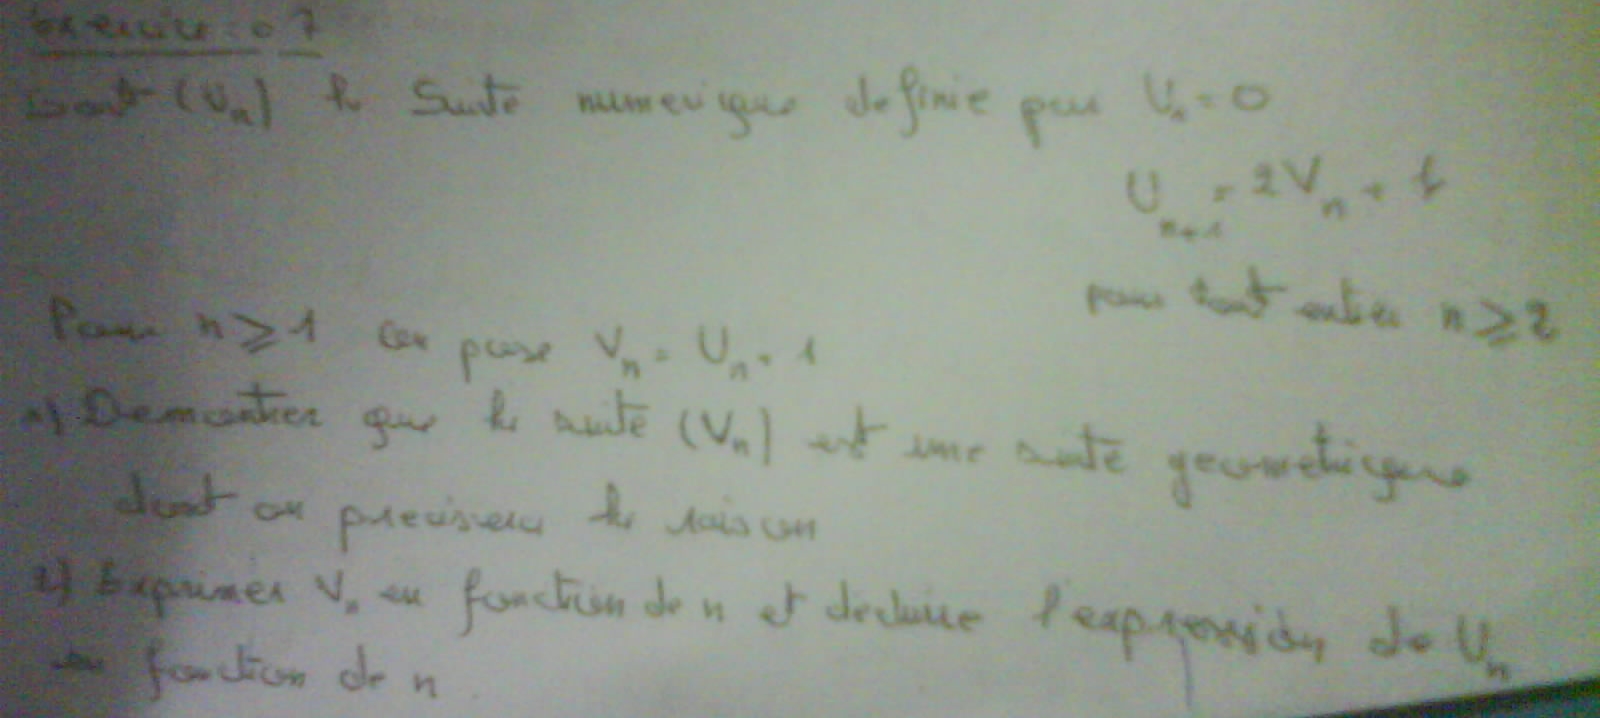 Exercice: 07
Soit (Un) la Suite numerique definie par U₁ = 0
Un+1 = 2Vn + 1
pour tout entier n ⩾ 2
Pour n ⩾ 1 on pose Vn = Un + 1
1) Demontrer que la suite (Vn) est une suite geometrique
dont on precisera la raison
2) Exprimer Vn en fonction de n et deduire l'expression de Un
en fonction de n.